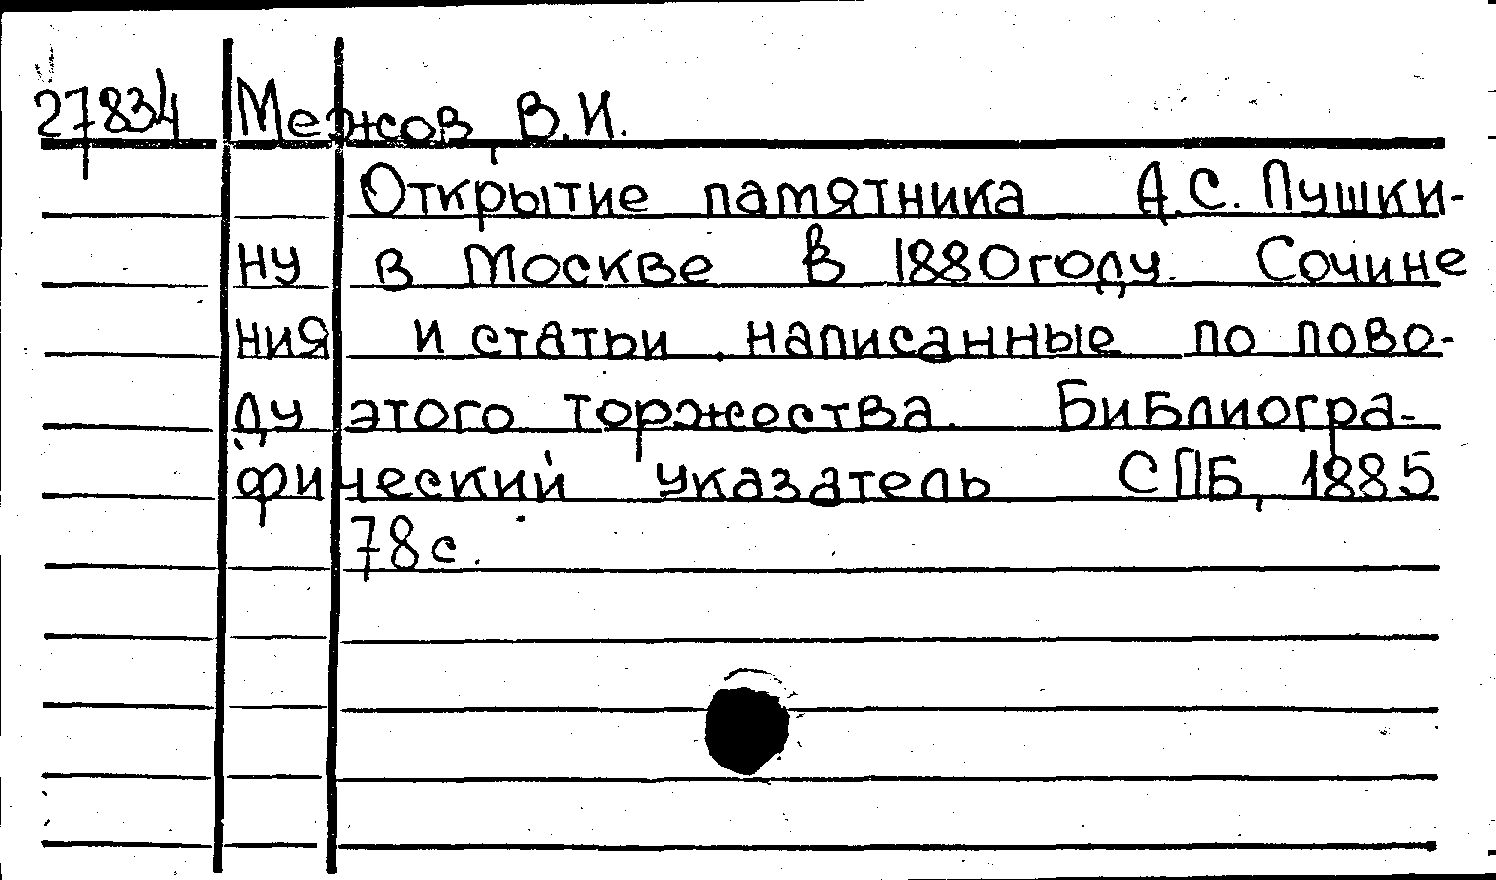 27834 Межов В.И.
Открытие памятника А.С. Пушки-
ну в Москве в 1880 году. Сочине
ния и статьи, написанные по пово-
ду этого торжества. Библиогра-
фический указатель СПБ, 1885
78 с.